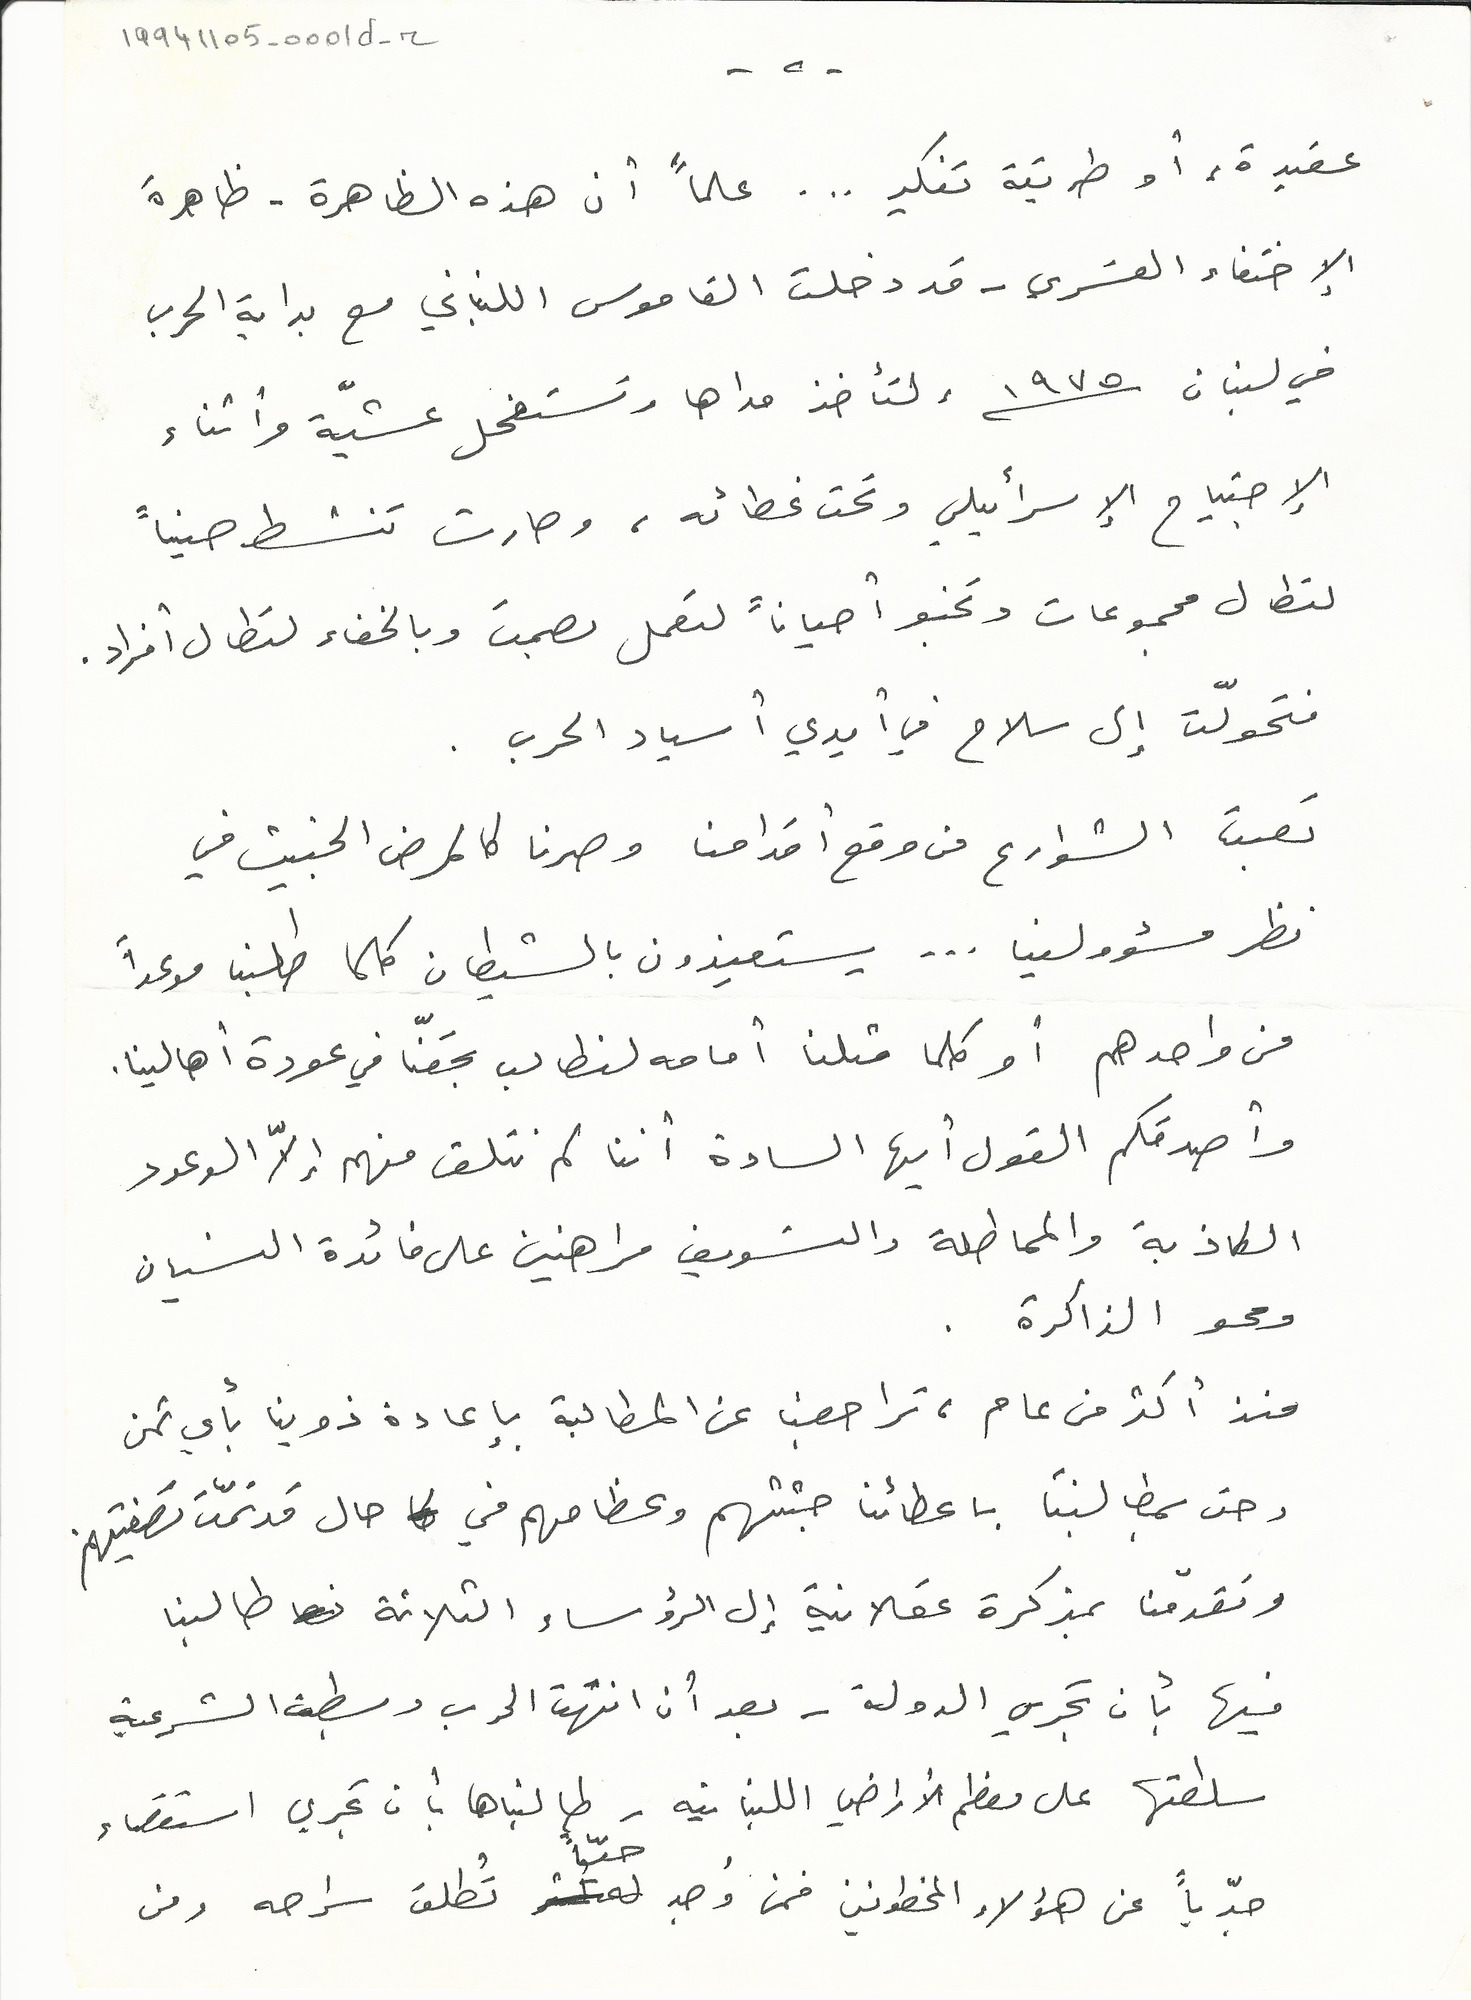 19941105_0001d_r
- ٢ -
عقيدة، أو طريقة تفكير ... علماً أن هذه الظاهرة - ظاهرة
الإختفاء القسري - قد دخلت القاموس اللبناني مع بداية الحرب
في لبنان ١٩٧٥، لتأخذ مداها وتستفحل عشيّة وأثناء
الإجتياح الإسرائيلي وتحت غطائه، وصارت تنشط حيناً
لتطال مجموعات وتخبو أحياناً لتعمل بصمت وبالخفاء لتطال أفراد.
فتحوّلت إلى سلاح في أيدي أسياد الحرب .
تعبت الشوارع من وقع أقدامنا وصرنا كالمرض الخبيث في
نظر مسؤولينا ... يستعيذون بالشيطان كلما طلبنا موعداً
من واحدهم أو كلما مثلنا أمامه لنطالب بحقنّا في عودة أهالينا.
وأصدقكم القول أيها السادة أننا لم نتلق منهم إلاّ الوعود
الكاذبة والمماطلة والتسويف مراهنين على فائدة النسيان
ومحو الذاكرة .
منذ أكثر من عام، تراجعنا عن المطالبة بإعادة ذوينا بأي ثمن
وحتى بمطالبتنا باعطائنا جثثهم وعظامهم في حال قد تمّت تصفيتهم.
وتقدّمنا بمذكرة عقلانية إلى الرؤساء الثلاثة طالبنا
فيها بأن تجري الدولة - بعد أن انتهت الحرب وبسطت الشرعية
سلطتها على معظم الأراضي اللبنانيه - طالبناها بأن تجري استقصاء
جدّياً عن هؤلاء المخطوفين فمن وُجد حيّاً تُطلق سراحه ومن